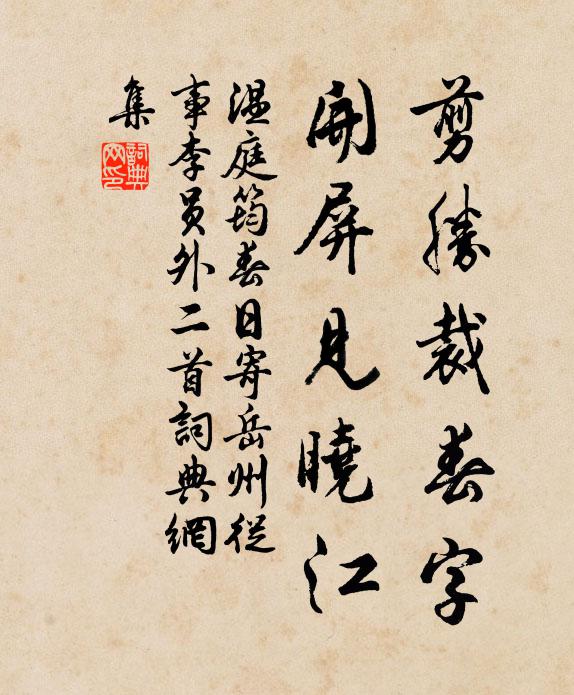 剪勝裁春字
開屏見曉江
溫庭筠春日寄岳州從
事李員外二首詞典網
集
詞典
网印